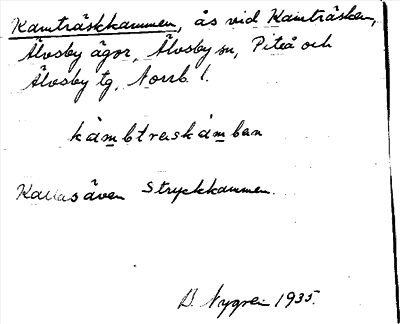 Kamträskkammen, ås vid Kamträsken,
Älvsby ägor, Älvsby sn, Piteå och
Älvsby tg, Norrb. l.
kámbtraskámban
Kallas även Stryckkammen.
B. Nygren 1935.